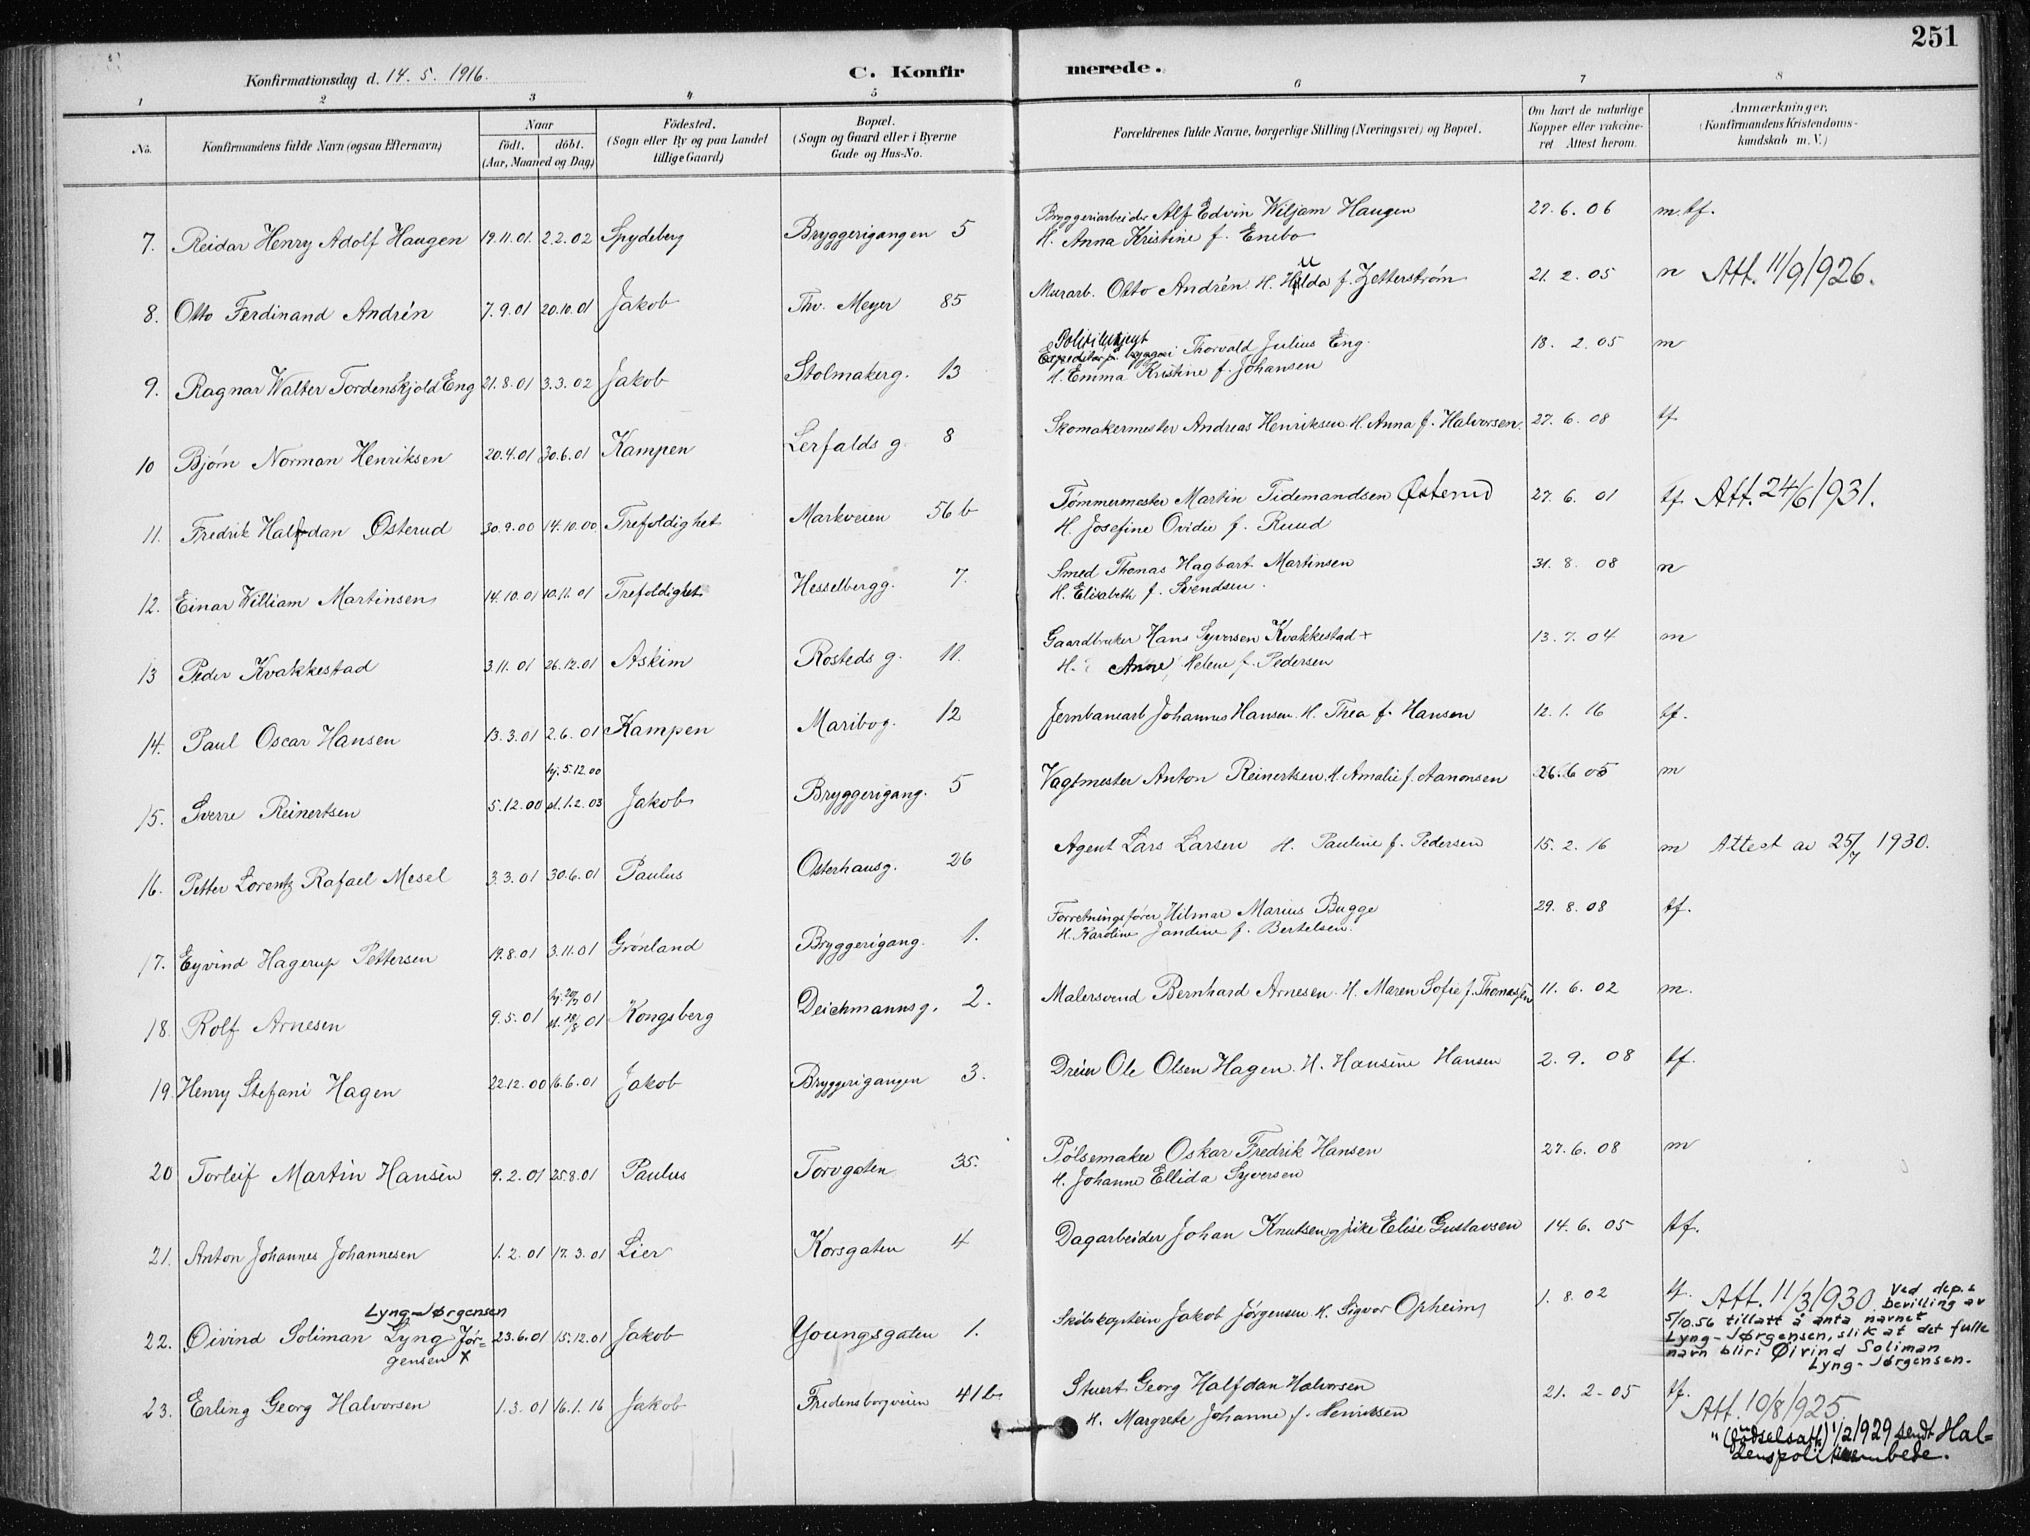 251
Konfirmationsdag d. 14. 5. 1916.
C. Konfirmerede.
1 2 3 4 5 6 7 8
No. Konfirmandens fulde Navn (ogsaa Efternavn) Naar født. døbt. (Aar, Maaned og Dag) Fødested. (Sogn eller By og paa Landet tillige Gaard) Bopæl. (Sogn og Gaard eller i Byerne Gade og Hus-No. Forældrenes fulde Navne, borgerlige Stilling (Næringsvei) og Bopæl. Om havt de naturlige Kopper eller vakcineret Attest herom. Anmærkninger. (Konfirmandens Kristendomskundskab m. V.)
7. Reidar Henry Adolf Haugen 19.11.01. 2.2.02 Spydeberg Bryggerigangen 5 Bryggeriarbeider Alf Edvin Wiljam Haugen 27.6.06 m.tf.
H. Anna Kristine f. Enebo
8. Otto Ferdinand Andrén 7.9.01 20.10.01 Jakob Thv. Meyer 85 Murarb. Otto Andrén H. Hulda f. Zetterstrøm 21. 2. 05 n Att. 11/9 1926.
9. Ragnar Walter Tordenskjold Eng 21.8.01 3.3.02 Jakob Stolmakerg. 13 Politibetjent Thorvald Julius Eng. 18. 2. 05 m
H. Emma Kristine f. Johansen
10 Bjørn Norman Henriksen 20.4.01 30.6.01 Kampen Lerfalds g. 8 Skomakermester Andreas Henriksen H. Anna f. Halvorsen. 27. 6. 08 tf.
11. Fredrik Halfdan Østerud 30.9.00 14.10.00 Trefoldighet Markveien 56 b Tømmermester Martin Tidemandsen Østerud 27. 6. 01 tf. Att. 24/6 1931.
H. Josefine Ovidie f. Ruud
12. Einar William Martinsen 14.10.01 10.11.01 Trefoldighet Hesselbergg. 7. Smed Thomas Hagbart Martinsen 31. 8. 08 n
H. Elisabeth f. Svendsen.
13 Peder Kvakkestad 3.11.01 26.12.01 Askim Rosteds g. 11. Gaardbruker Hans Syversen Kvakkestad + 13. 7. 04 m
H. Anne Helene f. Pedersen
14. Paul Oscar Hansen 13.3.01 2.6.01 Kampen Maribog. 12 Jernbanearb Johannes Hansen. H. Thea f. Hansen 12. 1. 16 tf.
15. Sverre Reinertsen 5.12.00 hj. 5.12.00 st. 1.2.03 Jakob Bryggerigang. 5 Vagtmester Anton Reinertsen H. Amalie f. Aanonsen 26.6 05 m
16. Petter Lorentz Rafael Mesel 3.3.01 30.6.01 Paulus Osterhausg. 26 Agent Lars Larsen H. Pauline f. Pedersen 15. 2. 16 m Attest av 25/7 1930.
17. Eyvind Hagerup Pettersen 19.8.01 3.11.01 Grønland Bryggerigang. 1. Forretningsfører Hilmar Marius Bugge 29. 8. 08 tf.
H. Karoline Jandine f. Bertelsen.
18. Rolf Arnesen 9.5.01 Kongsberg Deichmannsg. 2. Malersvend Bernhard Arnesen. H. Maren Sofie f. Thomassen 11. 6. 02 m.
19. Henry Stefani Hagen 22.12.00 16.6.01 Jakob Bryggerigangen 3. Dreier Ole Olsen Hagen. H. Hansine Hansen 2. 9. 08 tf.
20 Torleif Martin Hansen 9.2.01 25.8.01 Paulus Torvgaten 35. Pølsemaker Oskar Fredrik Hansen 27. 6. 08 m
H. Johanne Ellida Syversen
21. Anton Johannes Johannesen 1.2.01 17.3.01 Lier Korsgaten 4 Dagarbeider Johan Knutsen og pike Elise Gustavsen 14. 6. 05 tf.
22. Øivind Soliman Lyng Jørgensen x Lyng-Jørgensen 23.6.01 15.12.01 Jakob Youngsgaten 1. Skibskaptein Jakob Jørgensen H. Sigvor Opheim 1. 8. 02 tf. Att. 11/3 1930 Ved dep.s bevilling av
5/10.56 tillatt å anta navnet
Lyng-Jørgensen, slik at det fulle
navn blir: Øivind Soliman
Lyng-Jørgensen.
23. Erling Georg Halvorsen 1.3.01 16.1.16 Jakob Fredensborgveien 41 b Stuert Georg Halfdan Halvorsen 21. 2. 05 tf.
H. Margrete Johanne f. Henriksen
Att. 10/8 1925
" (fødselsatt) 1/2 1929 sendt Haldens politikammer